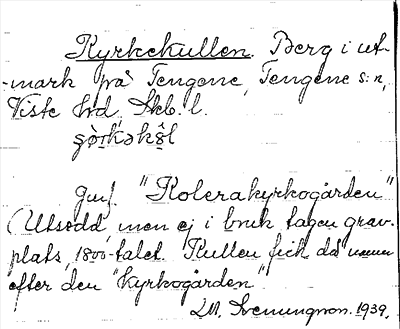 Kyrkekullen. Berg i ut-
mark på Tengene, Tengene s:n,
Viste hrd, Skb. l.
Jmf. "Kolerakyrkogården"
(Utsedd, men ej i bruk tagen grav-
plats, 1800-talet. Kullen fick då namn
efter den "kyrkogården"
1939.